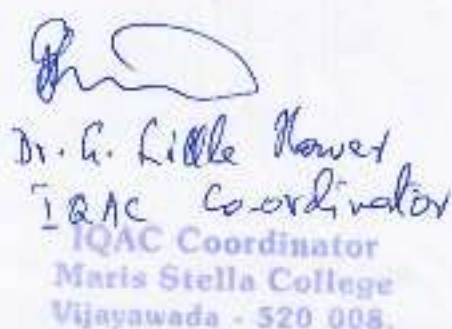 Dr. G. Little Flower
IQAC Co-ordinator
IQAC Coordinator
Maris Stella College
Vijayawada - 520 008.